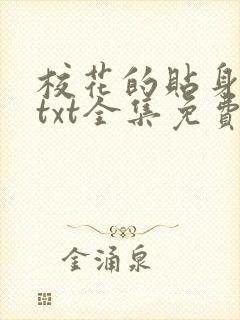 校花的貼身
txt全集免費
金涌泉